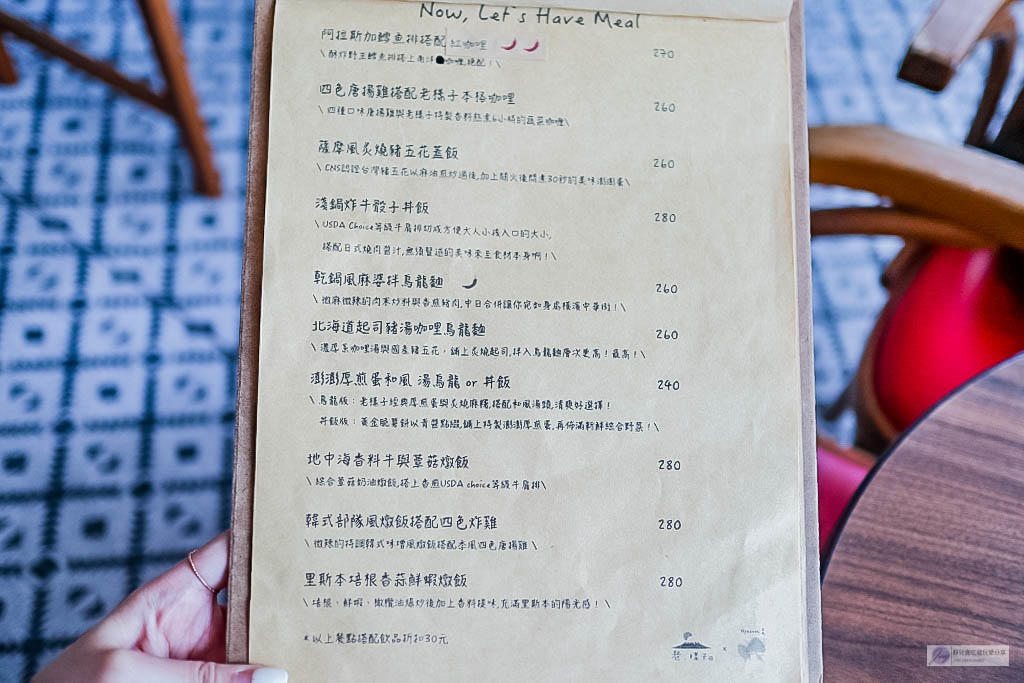 Now, Let's Have Meal
阿拉斯加鱈魚排搭配 紅咖哩 270
\ 酥炸野生鱈魚排搭上南洋咖哩,絕配！\
四色唐揚雞搭配老樣子本格咖哩 260
\ 四種口味唐揚雞與老樣子特製香料熬煮6小時的蔬菜咖哩 \
薩摩風炙燒豬五花蓋飯 260
\ CNS認證台灣豬五花以麻油煎炒過後,加上關火後悶煮30秒的美味澎澎蛋 \
淺鍋炸牛骰子丼飯 280
\ USDA Choice等級牛肩排切成方便大人小孩入口的大小,
搭配日式燒肉醬汁,無須贅述的美味來至食材本身啊！\
乾鍋風麻婆拌烏龍麵 260
\ 微麻微辣的肉末炒料與香煎豬肉,中日合併讓你宛如身處橫濱中華街！\
北海道起司豬湯咖哩烏龍麵 260
\ 濃厚系咖哩湯與國產豬五花，鋪上炙燒起司,拌入烏龍麵層次更高！最高！\
澎澎厚煎蛋和風 湯烏龍 or 丼飯 240
\ 烏龍版：老樣子經典厚煎蛋與炙燒麻糬,搭配和風湯頭,清爽好選擇！
丼飯版：黃金脆薯餅以青醬點綴,鋪上特製澎澎厚煎蛋,再佈滿新鮮綜合野菜！\
地中海香料牛與蕈菇燉飯 280
\ 綜合蕈菇奶油燉飯,搭上香煎USDA choice等級牛肩排 \
韓式部隊風燉飯搭配四色炸雞 280
\ 微辣的特調韓式味增風燉飯搭配本風四色唐揚雞 \
里斯本培根香蒜鮮蝦燉飯 280
\ 培根、鮮蝦、橄欖油爆炒後加上香料提味,充滿里斯本的陽光感！\
*以上餐點搭配飲品折扣30元
老樣子 x